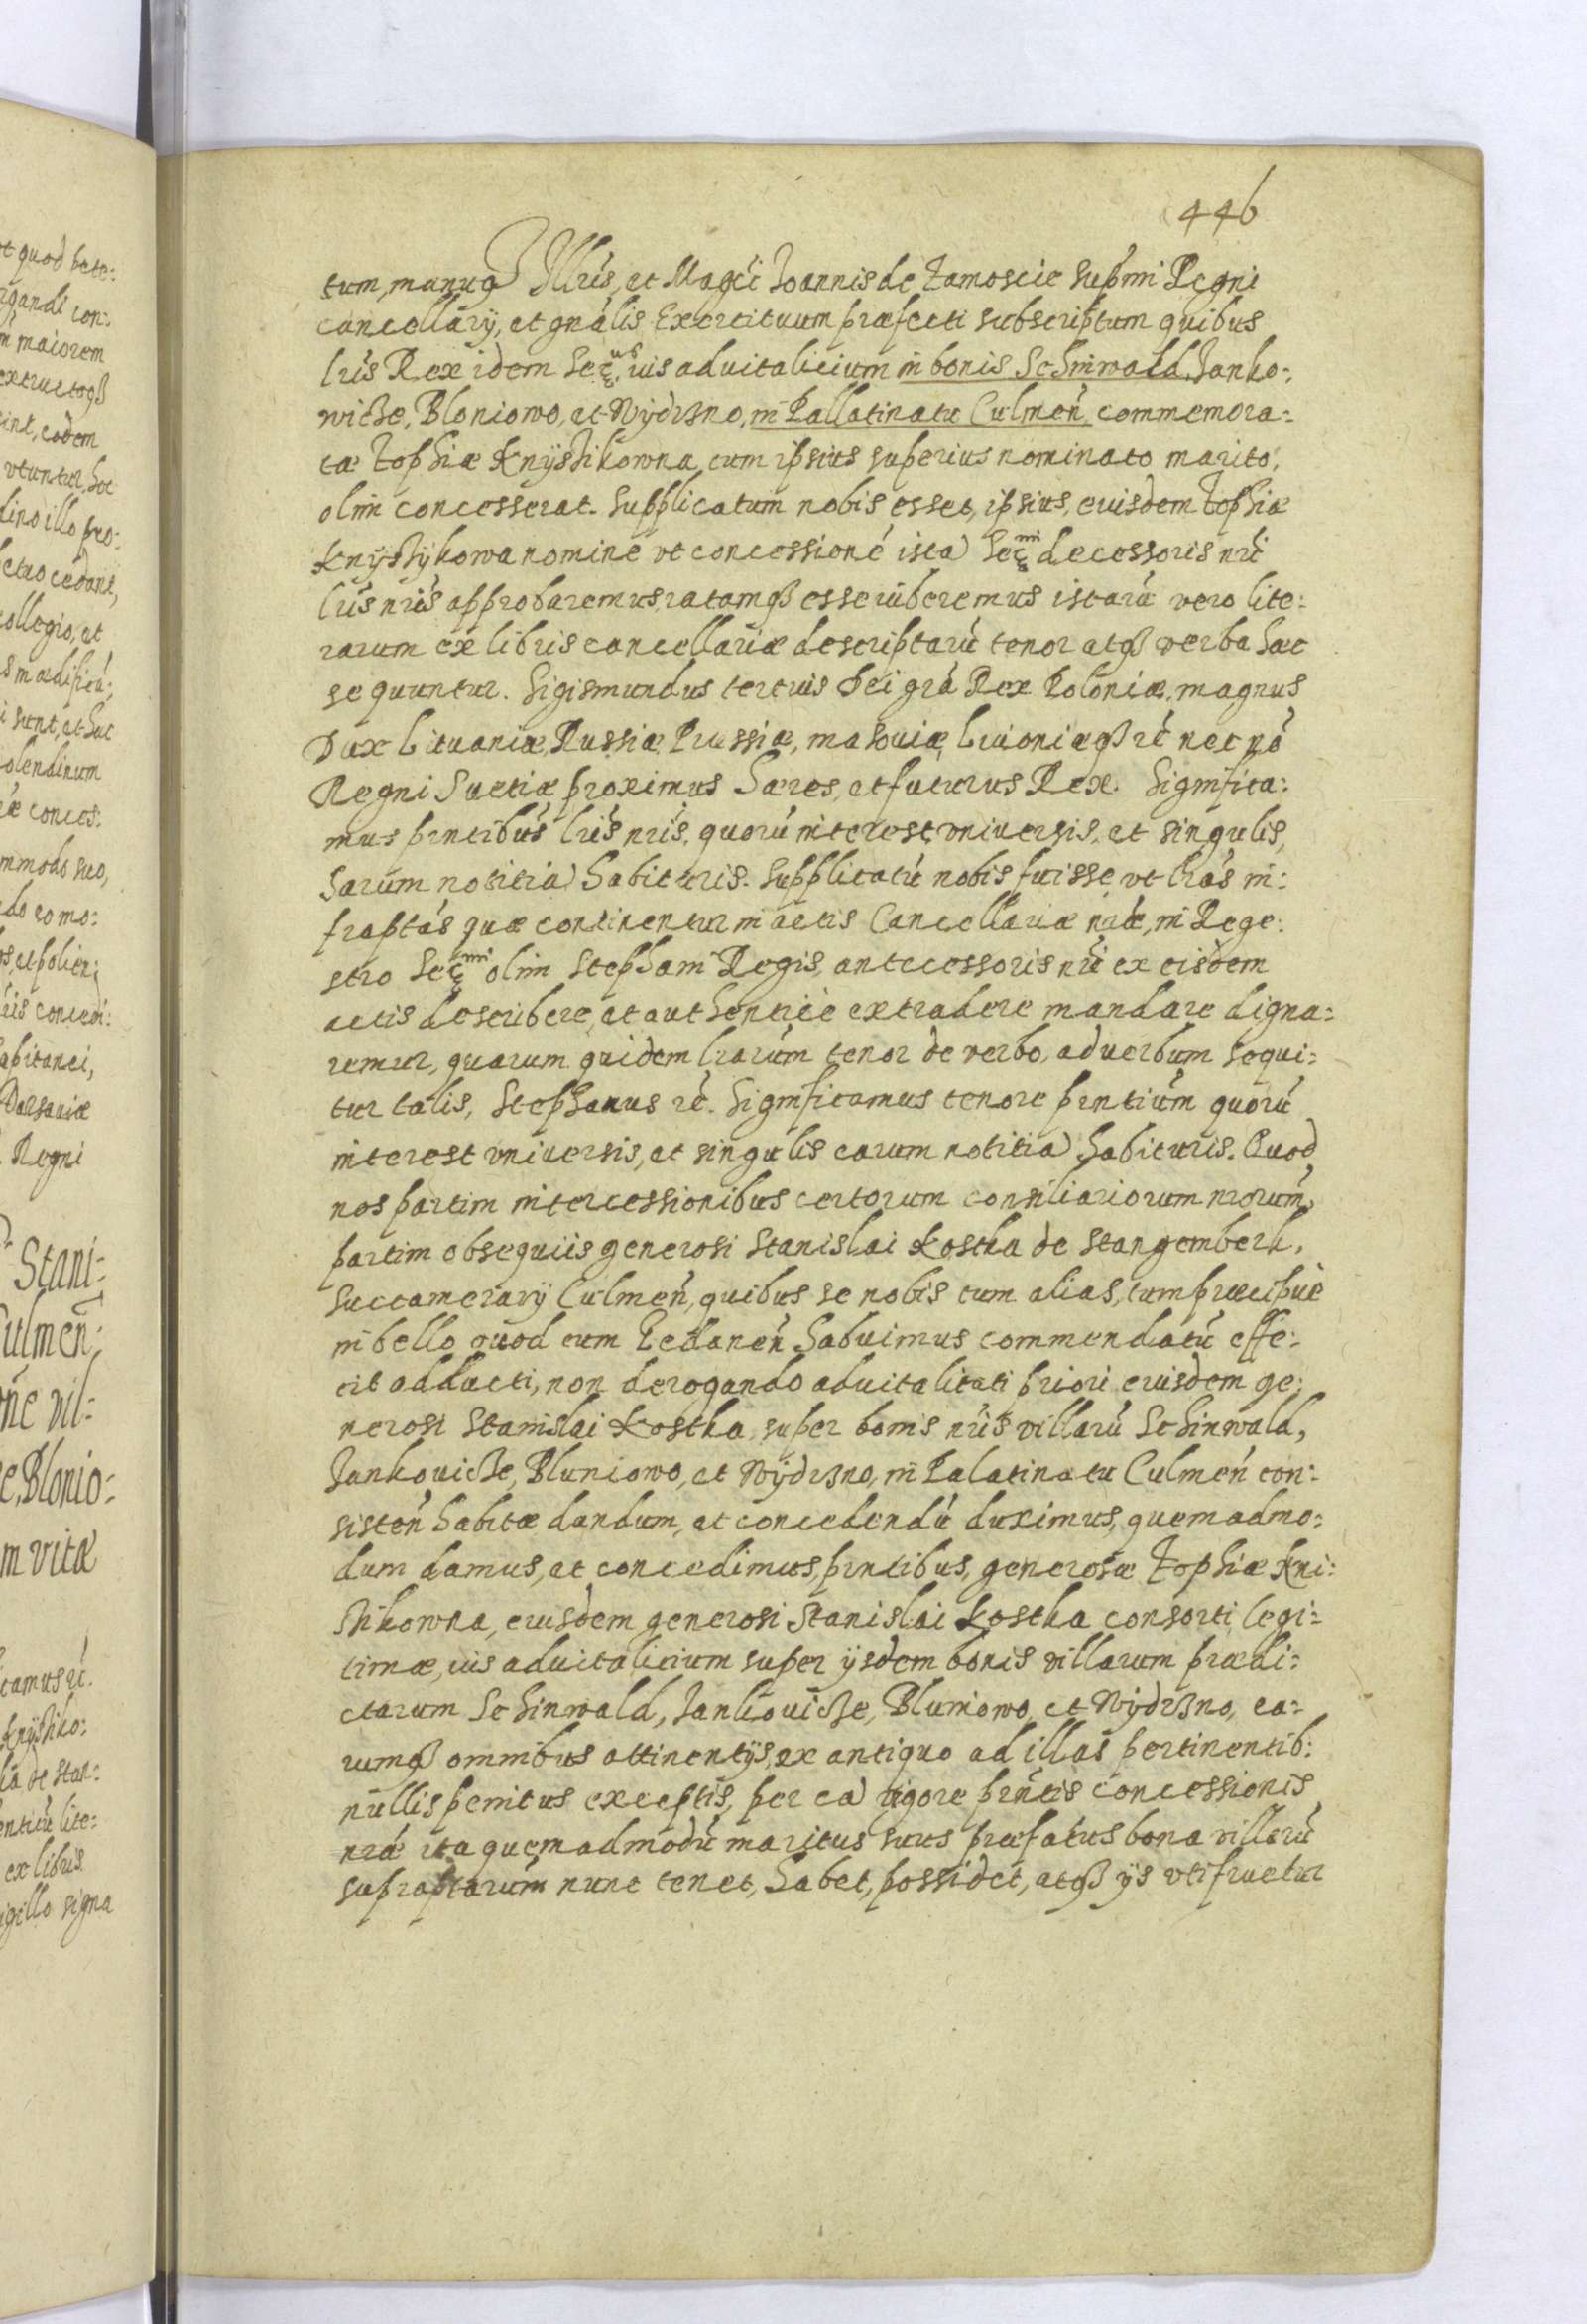 446
tum, manuq́ Illris, et Magci Joannis de Zamoscie supmi Regni
cancellarÿ, et gnalis Exercituum præfecti subscriptum quibus
lris Rex idem Seç.us ius aduitalicium in bonis Schinwald, Janko:
wicze, Bloniowo, et Wÿdrzno, in Pallatinatu Culmeń commemora:
tæ Zophiæ Knÿszikowna cum ipsius superius nominato marito,
olim concesserat. Supplicatum nobis esset, ipsius, euisdem Zophiæ
Knÿszÿkowa nomine vt concessioné ista Seç.mi decessoris nri
lris nris approbaremus, ratamqз esse iuberemus istarú vero lite:
rarum ex libris cancellariæ descriptarú tenor atqз verba hæc
sequuntur. Sigismundus tertius Dei grá Rex Poloniæ, magnus
Dux Lituaniæ, Russiæ, Prussiæ, masouiæ, Liuoniæqз rć necnó
Regni Suetiæ proximus hæres, et futurus Rex. Significa:
mus prntibus lris nris, quorú interest, vniuersis, et singulis,
harum notitia habituris. Supplicatú nobis fuisse, vt lras in:
fraptas quæ continentur in actis Cancellariæ nræ, in Rege:
stro Seç.mi olim Stephani Regis, antecessoris nri ex eisdem
actis describere, et authenticè extradere mandare digna:
remur, quarum quidem lrarum tenor de verbo, ad verbum sequi:
tur talis, Stephanus rć. Significamus tenore prntium quorú
interest vniuersis, et singulis earum notitia habituris. Quod
nos partim intercessionibus certorum consiliariorum nrorum,
partim obsequiis generosi Stanislai Kostka de Stangemberk,
succamerarÿ Culmeń, quibus se nobis cum alias, tum præcipuè
in bello quod cum Gedaneń habuimus commendatú effe:
cit adducti, non derogando aduitalitati priori eiusdem ge:
nerosi Stanislai Kostka, super bonis nris villarú Schinwald,
Jankouicze, Bluniowo, et Wÿdrzno, in Palatinatu Culmeń con:
sisteń habitæ dandum, et concedendú duximus, quemadmo:
dum damus, et concedimus, prntibus, generosæ Zophiæ Kni:
szikowna, eiusdem generosi Stanislai Kostka consorti legi:
timæ, ius aduitalitium super ÿsdem bonis villarum prædi:
ctarum Schinwald, Jankouicze, Bluniowo, et Wÿdrzno, ea:
rumqз omnibus attinentÿs, ex antiquo ad illas pertinentib:
nullis penitus exceptis, per ea vigore prntis concessionis
nræ ita quemadmodú maritus suus præfatus bona villarú
supraptarum nunc tenet, habet, possidet, atqз ÿs vtifruetur